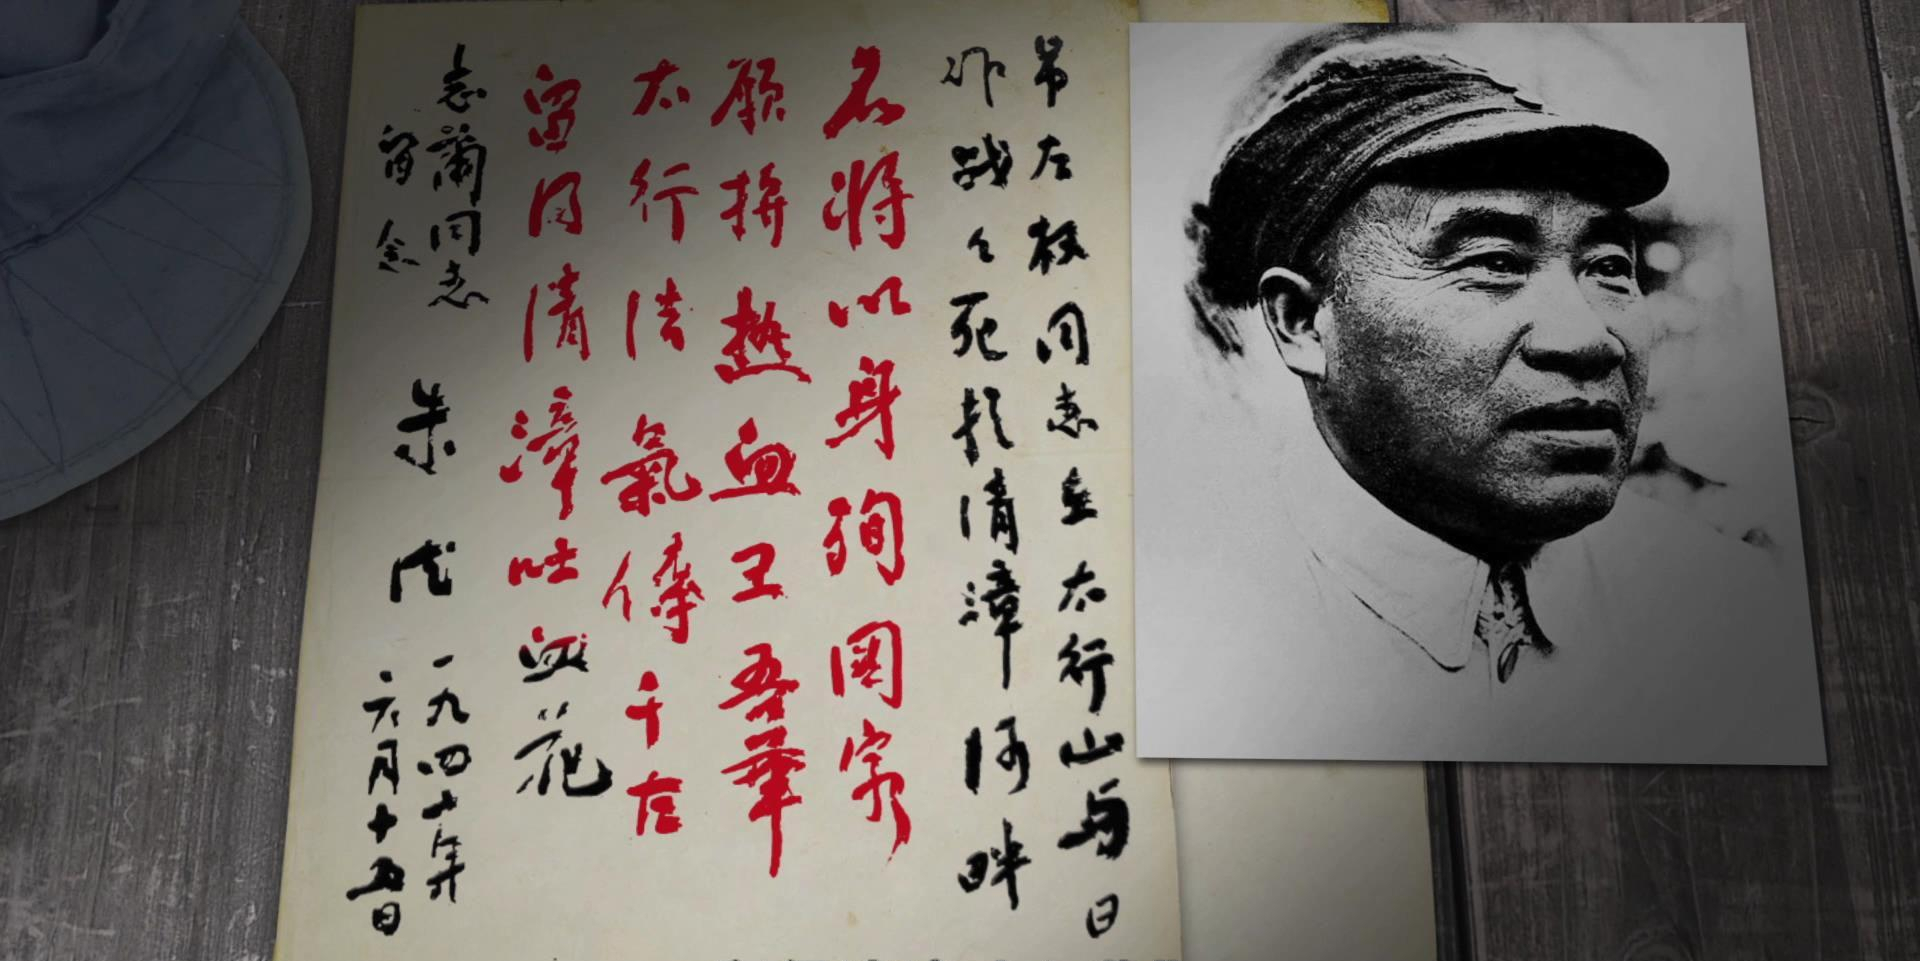 吊左权同志在太行山与日
作战々死於清漳河畔
名将以身殉國家
願拚熱血卫吾華
太行浩氣傳千古
留得清漳吐血花
志蘭同志
留念
朱德
一九四十年
六月十五日